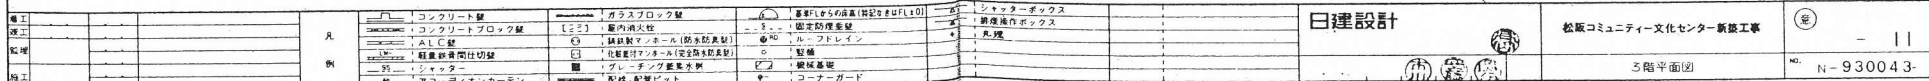 着工
竣工
監理
施工
凡
例
コンクリート壁
コンクリートブロック壁
ALC壁
LW 軽量鉄骨間仕切壁
SS シャッター
アコーディオンカーテン
ガラスブロック壁
屋内消火栓
鋳鉄製マンホール(防水防臭型)
化粧蓋付マンホール(完全防水防臭型)
グレーチング蓋集水桝
配線・配管ピット
基準FLからの床高(特記なきはFL±0)
S 固定防煙垂壁
RD ルーフドレイン
竪樋
機械基礎
コーナーガード
シャッターボックス
排煙操作ボックス
丸環
日建設計
松阪コミュニティー文化センター新築工事
3階平面図
意
- 11
NO. N-930043-